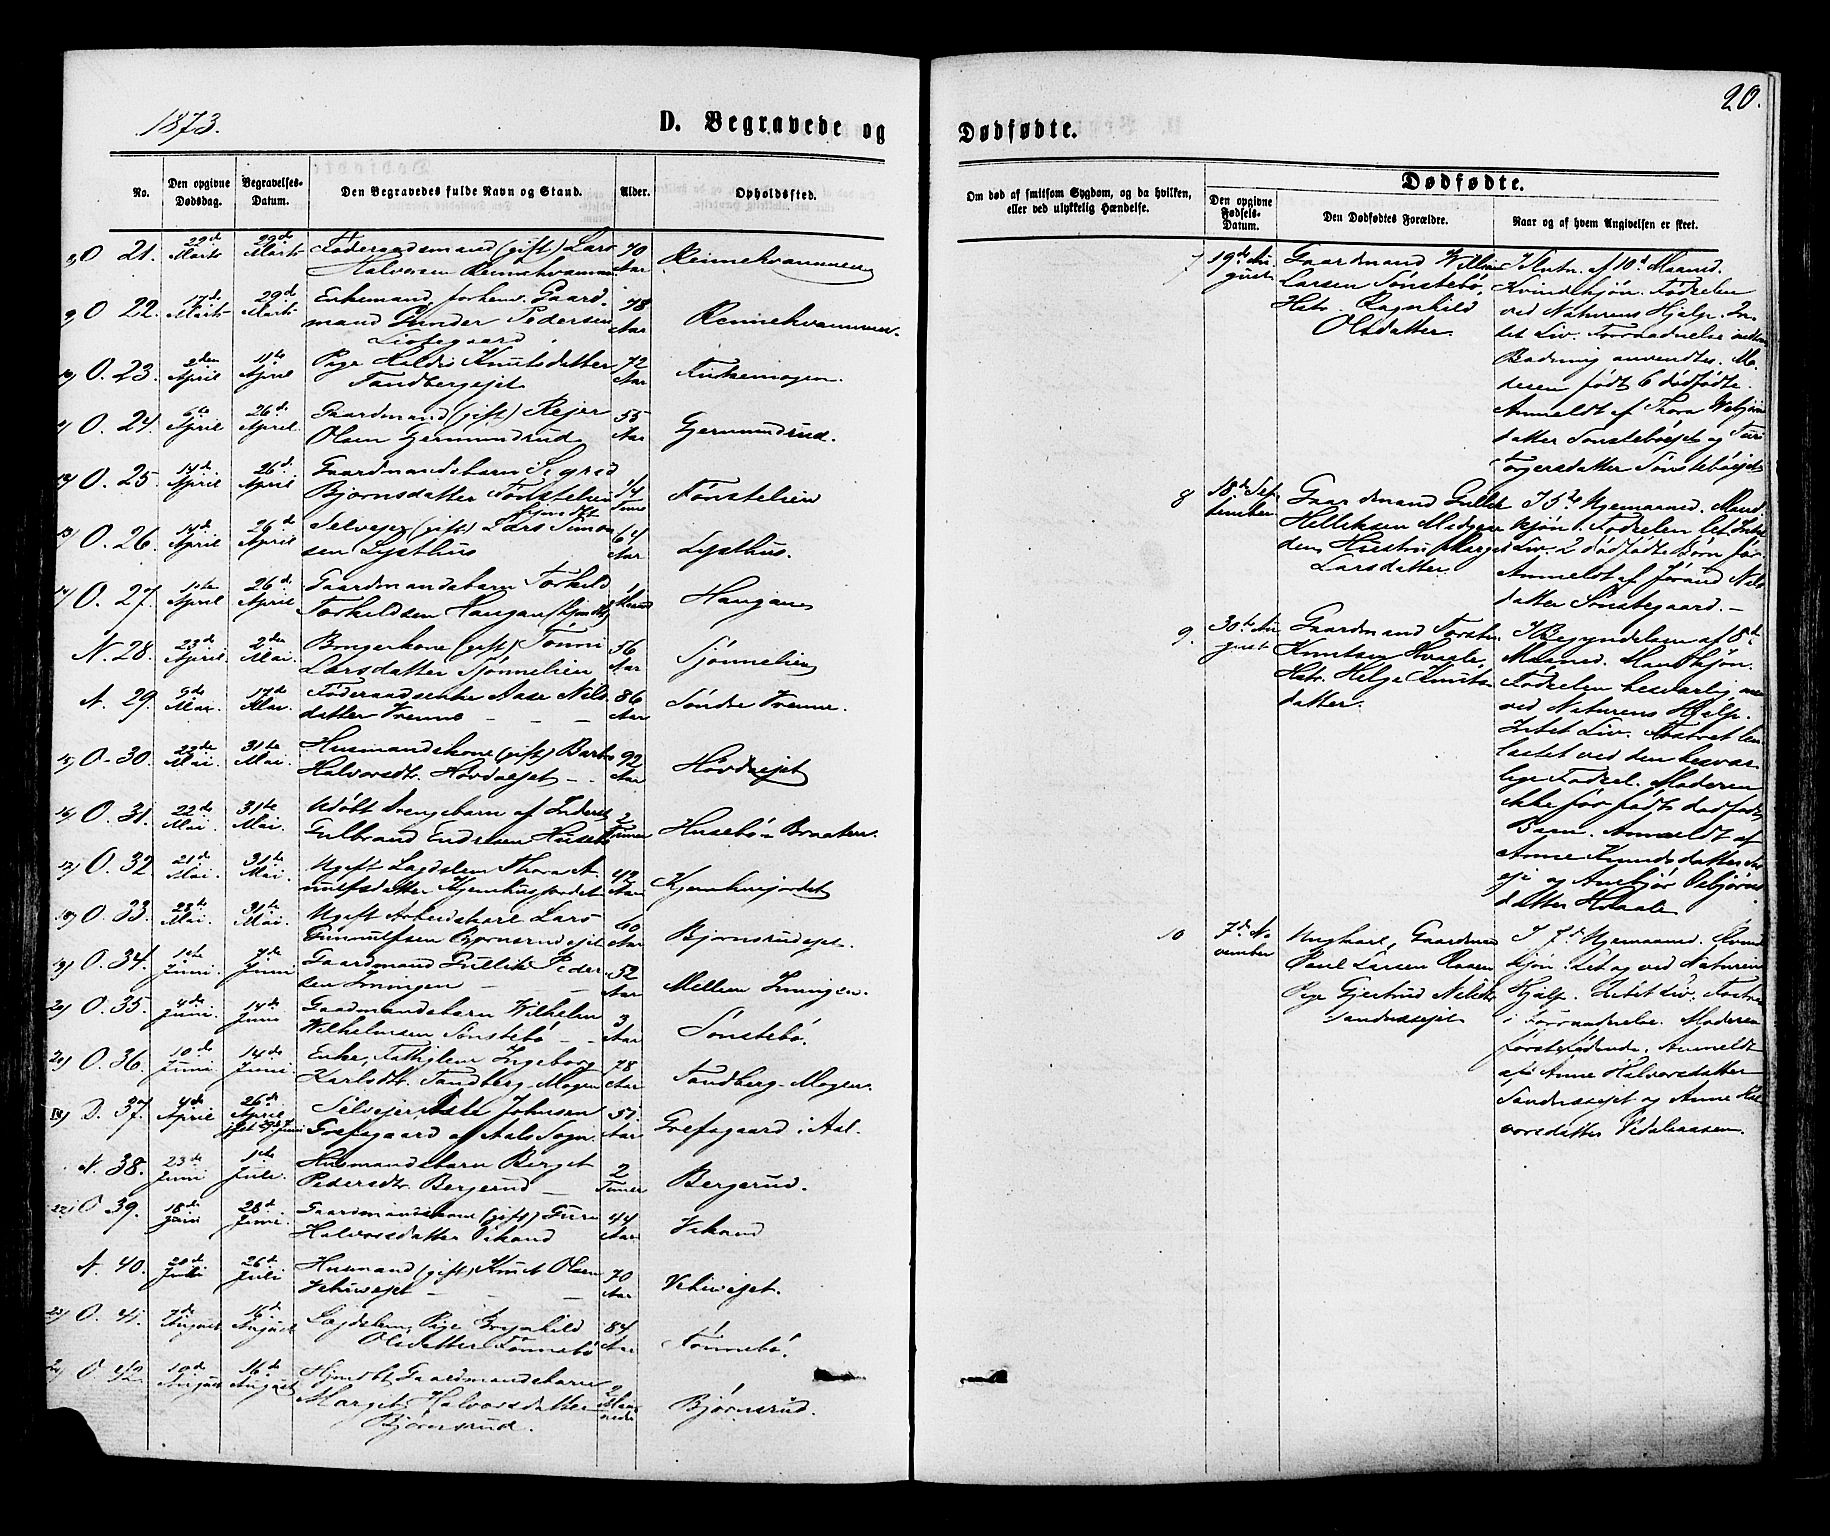 1873.
D. Begravede og
No.
Den opgivne Dødsdag.
Begravelses-Datum.
Den Begravedes fulde Navn og Stand.
Alder.
Opholdssted.
O 21. 22de Marts 29de Marts Føderaadsmand (gift) Lars 70
Halvorsen Rennehvammen Aar Rennehvammen
O 22. 17de Marts 29de Marts Enkemand, forhenv. Gaard- 78
mand Gunder Pedersen Aar Rennehvammen.
O. 23. 2den April 11te April Pige Heldis Knutsdatter 72
Tandbergejet Aar
O. 24. 6te April 26de April Gaardmand (gift) Rejer 55
Olsen Germundrud Aar Germundrud.
O. 25. 14de April 26de April Gaardmandsbarn Sigrid
Bjørnsdatter Tønstelien Tønstelien
hjemdbt
O. 26. 14de April 26de April Selvejer (gift) Lars Simon- 64
sen Lysthus Aar Lysthus.
O. 27. April 26de April Gaardmandsbarn Torkild
Torkildsen Haugan (hjmdbt)
N. 28. 23de April 2den Mai Borgerkone (gift) Tonni 56
Larsdatter Sjønnelien Aar Sjønnelien
N. 29. 9de Mai 17de Mai. Føderaadsenke Aase Nils- 86
datter Vrenne — — — Aar Søndre Vrenne.
O. 30. 22de Mai 31te Mai. Husmandskone (gift) Barbro 92
Halvorsdtr. Hovdeejet — Aar Hovdeejet
O. 31. 22de Mai 31te Mai. Udøbt Drengebarn af Inderst 2
Gulbrand Endresen Husebø Timer Husebø-Braaten.
O. 32 21de Mai 31te Mai. Ugift Lægdslem Thora 42
Kjemhusjordet Aar Kjemhusjordet
O. 33. 28de Mai 31te Mai. Ugift Arbeidskarl Lars 60
Gunnulfsen Bjørnsrudejet Aar Bjørnsrudejet.
O. 34. 1ste Juni 7de Juni Gaardmand Gullik Peder- 52
sen Juvingen — — Aar Mellem Juvingen.
O. 35. 4de Juni. 14de Juni Gaardmandsbarn Wilhelm 3
Wilhelmsen Sønstebø — Aar Sønstebø.
O. 36. 10de Juni 14de Juni Enke, Fattiglem Ingeborg 78
Karlsdtr. Tandberg-Mogen Aar Tandberg-Mogen.
O. 37. 4de April 26de April Selvejer Johnsen 51
Grefsgaard af Aals Sogn. Aar Grefsgaard i Aal.
N. 38. 23de Juni 1ste Juli. Husmandsbarn Berget 2
Pedersdtr. Bergerud — Timer Bergerud.
O 39. 18de Juni 28de Juni. Gaardmandskone (gift) Guri 44
Halvorsdatter Vikand Aar Vikand
N. 40. 20de Juli 26de Juli Husmand (gift) Knut Olsen 70
— — — Aar
O. 41. 7de August 16de August Lægdslem, Pige Gunhild 84
Olsdatter Tønnebø Aar Tønnebø.
O. 42. 10de August 16de August Hjmdbt Gaardmandsbarn 2
Margit Halvorsdatter Maaneder Bjørnsrud.
Bjørnsrud.
20.
Dødfødte.
Om død af smitsom Sygdom, og da hvilken, eller ved ulykkelig Hændelse.
Dødfødte.
Den opgivne Fødsels-Datum.
Den Dødfødtes Forældre.
Naar og af hvem Angivelsen er skeet.
7 19de August Gaardmand Willum
Larsen Sønstebø,
Hstr. Ragnhild
Olsdatter.
I Slutn. af 10d Maaned.
Kvindekjøn. Fødselen
ved Naturens Hjælp. In-
tet Liv. Forraadnelse inden
Badning anvendtes. Mo-
deren født 6 dødfødte.
Anmeldt af Thora Webjørns-
datter Sønstebøejet og Turi
Torgersdatter Sønstebøejet
8 18de September Gaardmand Gullik
Helliksen
Hustru Marget
Larsdatter.
I 5te Ugemaaned. Mand-
kjøn. Fødselen let. Intet
Liv. 2 dødfødte Børn før.
Anmeldt af Jørand Nils-
datter Sønstegaard. —
9. 30te August Gaardmand Torsten
Knutsen Hvaale,
Hstr. Helge Knuts-
datter.
I Begyndelsen af 8de
Maaned. Mandkjøn.
Fødselen besværlig men
ved Naturens Hjælp.
Intet Liv. Fostret
ved den besvær-
lige Fødsel. Moderen
ikke før født dødfødt
Barn. Anmeldt af
Anne Knudsdatter
og Anbjør Asbjørns-
datter Hvaale
10 7de November Ungkarl, Gaardmand
Paul Larsen
Pige Gjertrud Nilsdtr.
Sandersejet
I 7de Ugemaaned. Kvind-
kjøn. Let og ved Naturens
Hjælp. Intet Liv. Fostret
i Forraadnelse. Moderen
førstefødende. Anmeldt
af Anne Halvorsdatter
Sandersejet og Anne Hal-
vorsdatter Vedalaasen.